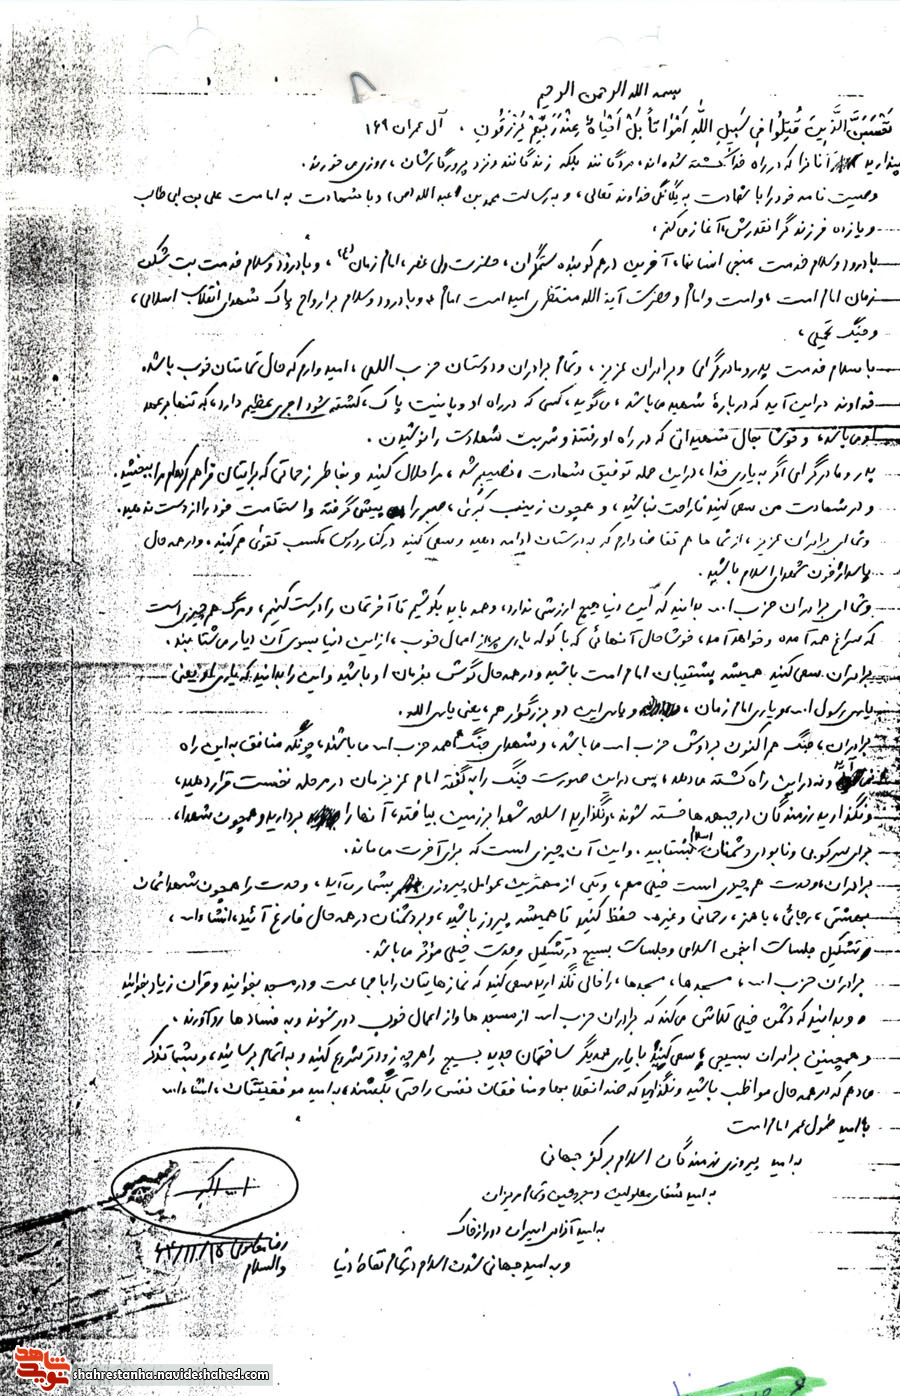 بسمه الله الرحمن الرحیم
تَحْسَبَنَّ الَّذِینَ قُتِلُوا فِی سَبِیلِ اللَّهِ اَمْوَاتاً بَلْ اَحْیَاءٌ عِنْدَ رَبِّهِمْ یُرْزَقُونِ . آل عمران ۱۶۹
پندارید آنانرا که در راه خدا کشته شده اند، مردگانند بلکه زندگانند و نزد پروردگارشان، روزی می خورند.
وصیت نامه خود را با شهادت به یگانگی خداوند تعالی، و به رسالت محمد بن عبدالله (ص) و با شهادت به امامت علی بن ابی طالب
و یازده فرزند گرانقدرش، آغاز می کنم،
با درود و سلام خدمت منجی انسانها، آفرین درهم کوبنده ستمگران، حضرت ولی عصر، امام زمان (ع)، و با درود و سلام خدمت بت شکن
زمان امام امت، و امت و امام و حضرت آیة الله منتظری امید امت امام و با درود و سلام بر ارواح پاک شهدای انقلاب اسلامی،
و جنگ تحمیلی،
با سلام خدمت پدر و مادر گرامی و برادران عزیز، و تمام برادران و دوستان حزب اللهی، امیدوارم که حال تمامتان خوب باشد.
خداوند در این آیه که درباره شهید می باشد، می گوید، کسی که در راه او و با نیت پاک، کشته شود اجری عظیم دارد، که تنها بر عهد
او می باشد، و خوشا بحال شهیدانی که در راه او رفتند و شربت شهادت را نوشیدن.
پدر و مادر گرامی اگر به یاری خدا، در این حمله توفیق شهادت، نصیبم شد، مرا حلال کنید و بخاطر زحماتی که برایتان فراهم کردم مرا ببخشید.
و در شهادت من سعی کنید ناراحت نباشید، و همچون زینب کبری، صبر را پیش گرفته و استقامت خود را از دست ندهید.
و شما ای برادران عزیز، از شما هم تقاضا دارم که به درستان ادامه دهید و سعی کنید در کنار درس مکسب تقوی هم کنید. و در همه حال
پاسدار خون شهدای اسلام باشید.
و شما ای برادران حزب الله بدانید که این دنیا هیچ ارزشی ندارد، و همه باید بکوشیم تا آخرتمان را درست کنیم، و مرگ هم چیزی است
که سراغ همه آمده و خواهد آمد، خوشا حال آنهائی که با کوله باری پر از اعمال خوب، از این دنیا بسوی آن دیار می شتابند.
برادران سعی کنید همیشه پشتیبان امام امت باشید و در همه حال گوش بفرمان او باشید و این را بدانید که یاری او یعنی
یاری رسول الله و یاری امام زمان، و یاری این دو بزرگوار هم، یعنی یاری الله.
برادران، جنگ هم اکنون بر دوش حزب الله می باشد، و شهدای جنگ همه حزب الله می باشند، چونکه منافق به این راه
نمی آید و نه در این راه کشته می دهد، پس در این صورت جنگ را به گفته امام عزیزمان در مرحله نخست قرار دهید،
و نگذارید رزمندگان در جبهه ها خسته شوند، و نگذارید اسلحه شهدا بر زمین بیافتد، آنها را بردارید و همچون شهدا،
برای سرکوبی و نابودی دشمنان اسلام بشتابید. و این آن چیزی است که برای آخرت می ماند.
برادران، وحدت هم چیزی است خیلی مهم، و یکی از مهمترین عوامل پیروزی بشمار می آید، وحدت را همچون شهدایمان
بهشتی، رجائی، باهنر، رحمانی و غیره حفظ کنید تا همیشه پیروز باشید، و بر دشمنان در همه حال فارغ آئید، انشاءالله،
و تشکیل جلسات انجمن اسلامی و جلسات بسیج در تشکیل وحدت خیلی مؤثر می باشد.
برادران حزب الله، مسجدها، مسجدها، را خالی نگذارید سعی کنید که نمازهایتان را با جماعت و در مسجد بخوانید و قرآن زیاد بخوانید
و بدانید که دشمن خیلی تلاش می کند که برادران حزب الله از مسجدها و از اعمال خوب دور شوند و به فسادها رو آورند.
و همچنین برادران بسیجی سعی کنید با یاری همدیگر ساختمان جدید بسیج را هر چه زودتر شروع کنید و به اتمام برسانید، و بشما تذکر
می دهم که در همه حال مواظب باشید و نگذارید که ضد انقلابها و منافقان نفس راحتی بکشند، به امید موفقیتتان، انشاءالله
با امید طول عمر امام امت
به امید پیروزی رزمندگان اسلام بر کفر جهانی
به امید شفای معلولین و مجروحین و تمام مریزان
به امید آزادی اسیران دور از خاک
و به امید جهانی شدن اسلام در تمام نقاط دنیا
الله اکبر
رضا
والسلام
نوید شاهد
shahrestanha.navideshahed.com